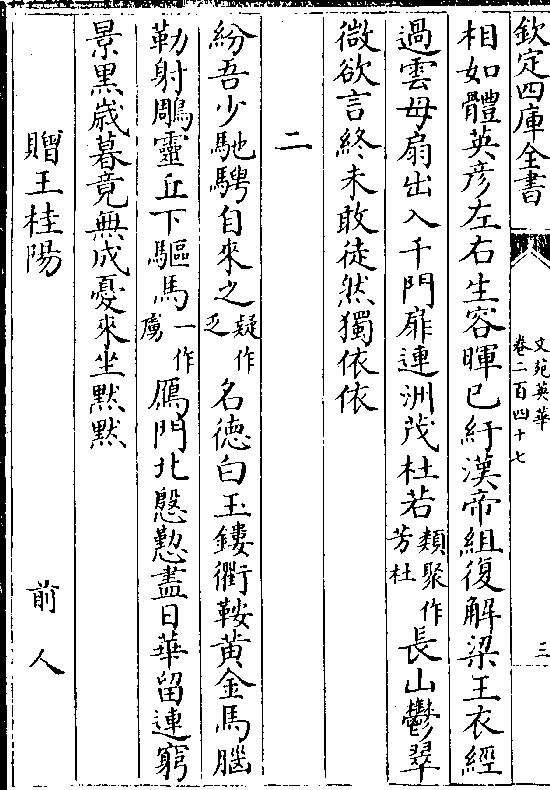 欽定四庫全書
文苑英華
卷二百四十七
三
相如體英彦左右生容暉已紆漢帝組復解梁王衣經
過雲母扇出入千門扉連洲茂杜若類聚作芳杜長山鬱翠
微欲言終未敢徒然獨依依
二
紛吾少馳騁自來之疑作乏名徳白玉鏤衢鞍黄金馬腦
勒射鵰靈丘下驅馬一作虜鴈門北慇懃盡日華留連窮
景黒嵗暮竟無成憂來坐黙黙
贈王桂陽
前人